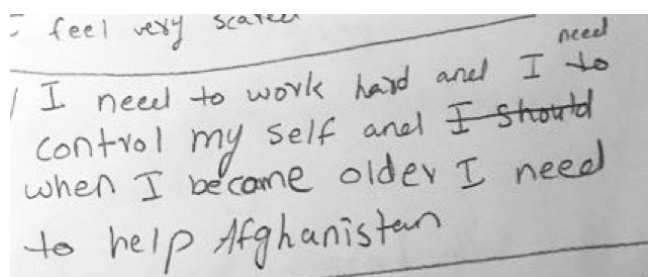 I feel very scared
I need to work hard and I need to
control my self and I should
when I become older I need
to help Afghanistan